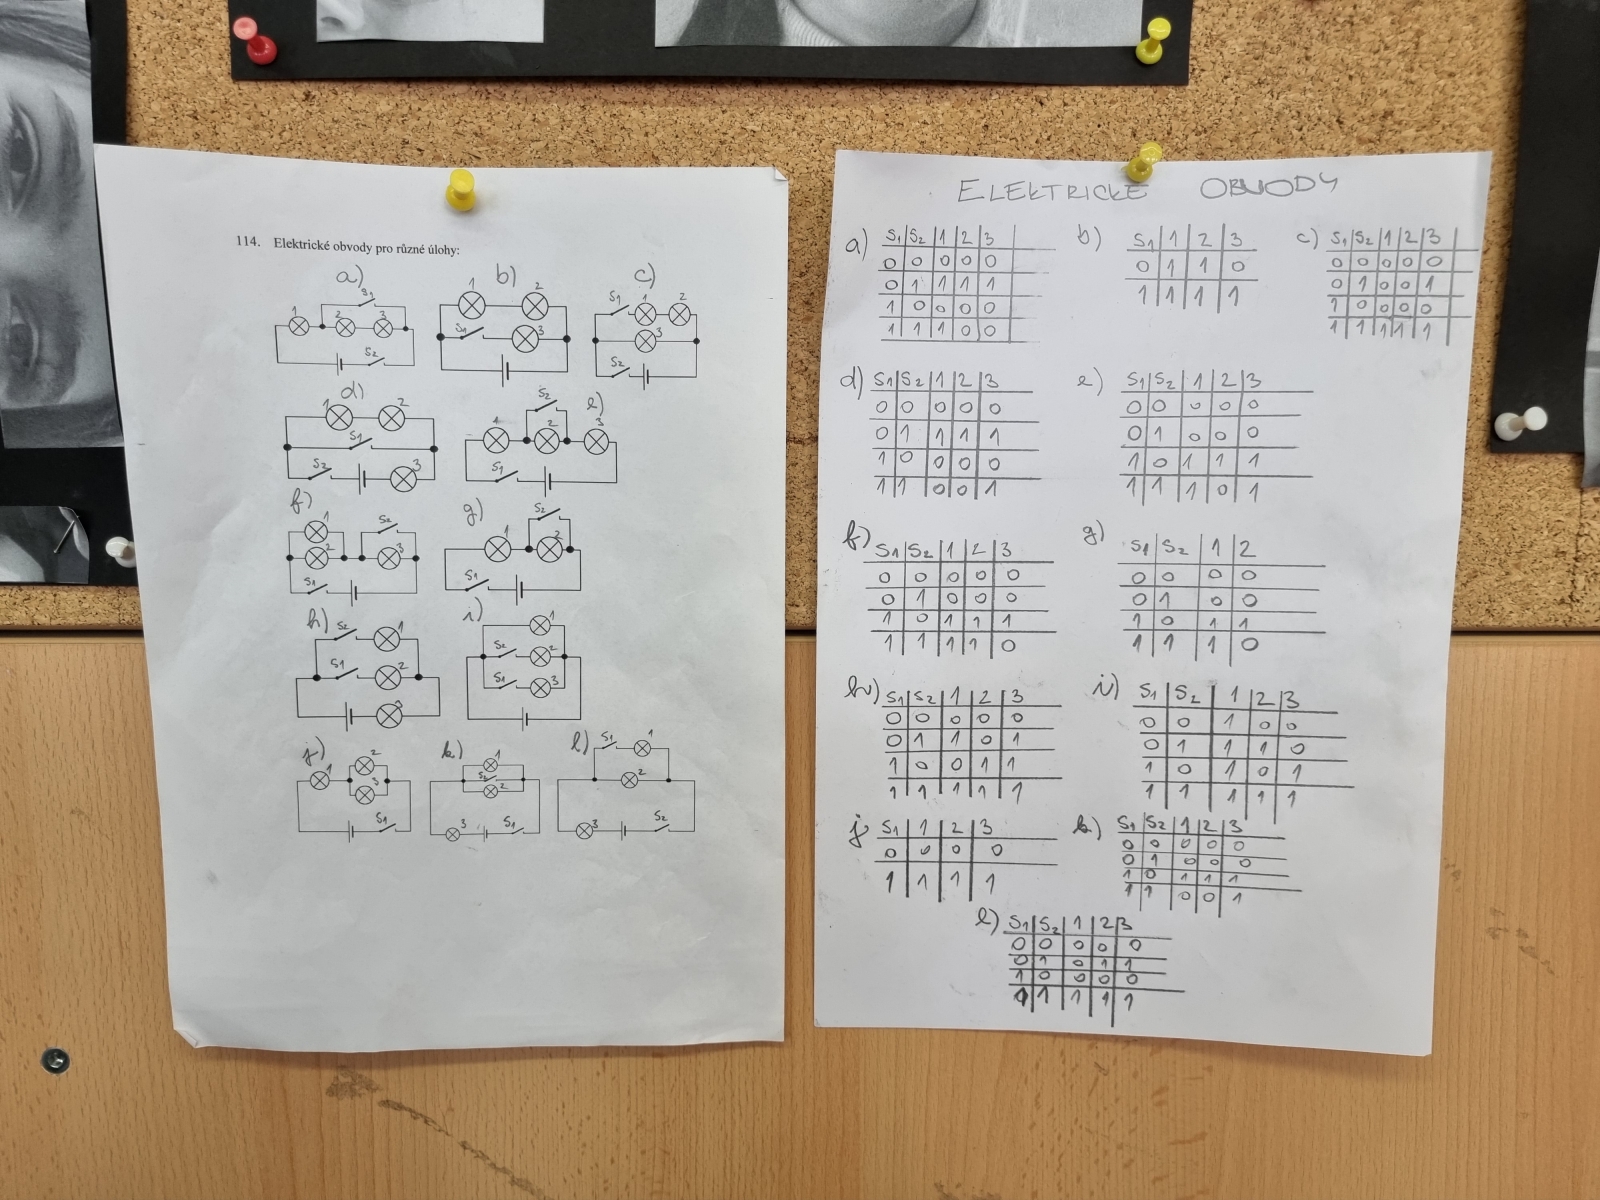 114. Elektrické obvody pro různé úlohy:
a) b) c)
S1 1 2 3 S2
1 2 S1 3
S1 1 2 3 S2
d) e)
1 2 S1 S2 3
S2 1 2 3 S1
f) g)
1 2 S2 3 S1
S2 1 2 S1
h) i)
S2 1 S1 2 3
1 S2 2 S1 3
j) k) l)
1 2 3 S1
1 S2 2 3 S1
S1 1 2 3 S2
ELEKTRICKÉ OBVODY
a)
S1 S2 1 2 3
0 0 0 0 0
0 1 1 1 1
1 0 0 0 0
1 1 1 0 0
b)
S1 1 2 3
0 1 1 0
1 1 1 1
c)
S1 S2 1 2 3
0 0 0 0 0
0 1 0 0 1
1 0 0 0 0
1 1 1 1 1
d)
S1 S2 1 2 3
0 0 0 0 0
0 1 1 1 1
1 0 0 0 0
1 1 0 0 1
e)
S1 S2 1 2 3
0 0 0 0 0
0 1 0 0 0
1 0 1 1 1
1 1 1 0 1
f)
S1 S2 1 2 3
0 0 0 0 0
0 1 0 0 0
1 0 1 1 1
1 1 1 1 0
g)
S1 S2 1 2
0 0 0 0
0 1 0 0
1 0 1 1
1 1 1 0
h)
S1 S2 1 2 3
0 0 0 0 0
0 1 1 0 1
1 0 0 1 1
1 1 1 1 1
i)
S1 S2 1 2 3
0 0 1 0 0
0 1 1 1 0
1 0 1 0 1
1 1 1 1 1
j)
S1 1 2 3
0 0 0 0
1 1 1 1
k)
S1 S2 1 2 3
0 0 0 0 0
0 1 0 0 0
1 0 1 1 1
1 1 0 0 1
l)
S1 S2 1 2 3
0 0 0 0 0
0 1 0 1 1
1 0 0 0 0
1 1 1 1 1